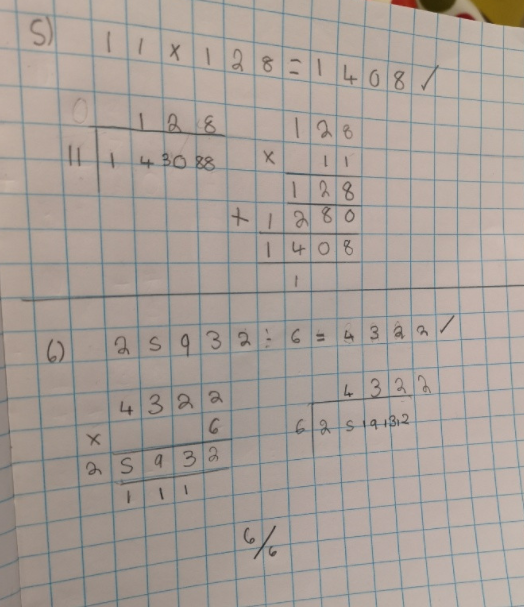 5) 11 x 128 = 1408 ✓
0 1 2 8
11 1 4 30 88
128
x 11
128
+ 1280
1408
1
6) 25932 ÷ 6 = 4322 ✓
4322
x 6
25932
1 1 1
4 3 2 2
6 2 5 19 13 12
6/6